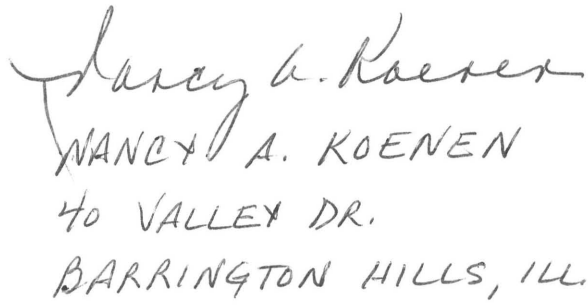 Nancy A. Koenen
NANCY A. KOENEN
40 VALLEY DR.
BARRINGTON HILLS, ILL.